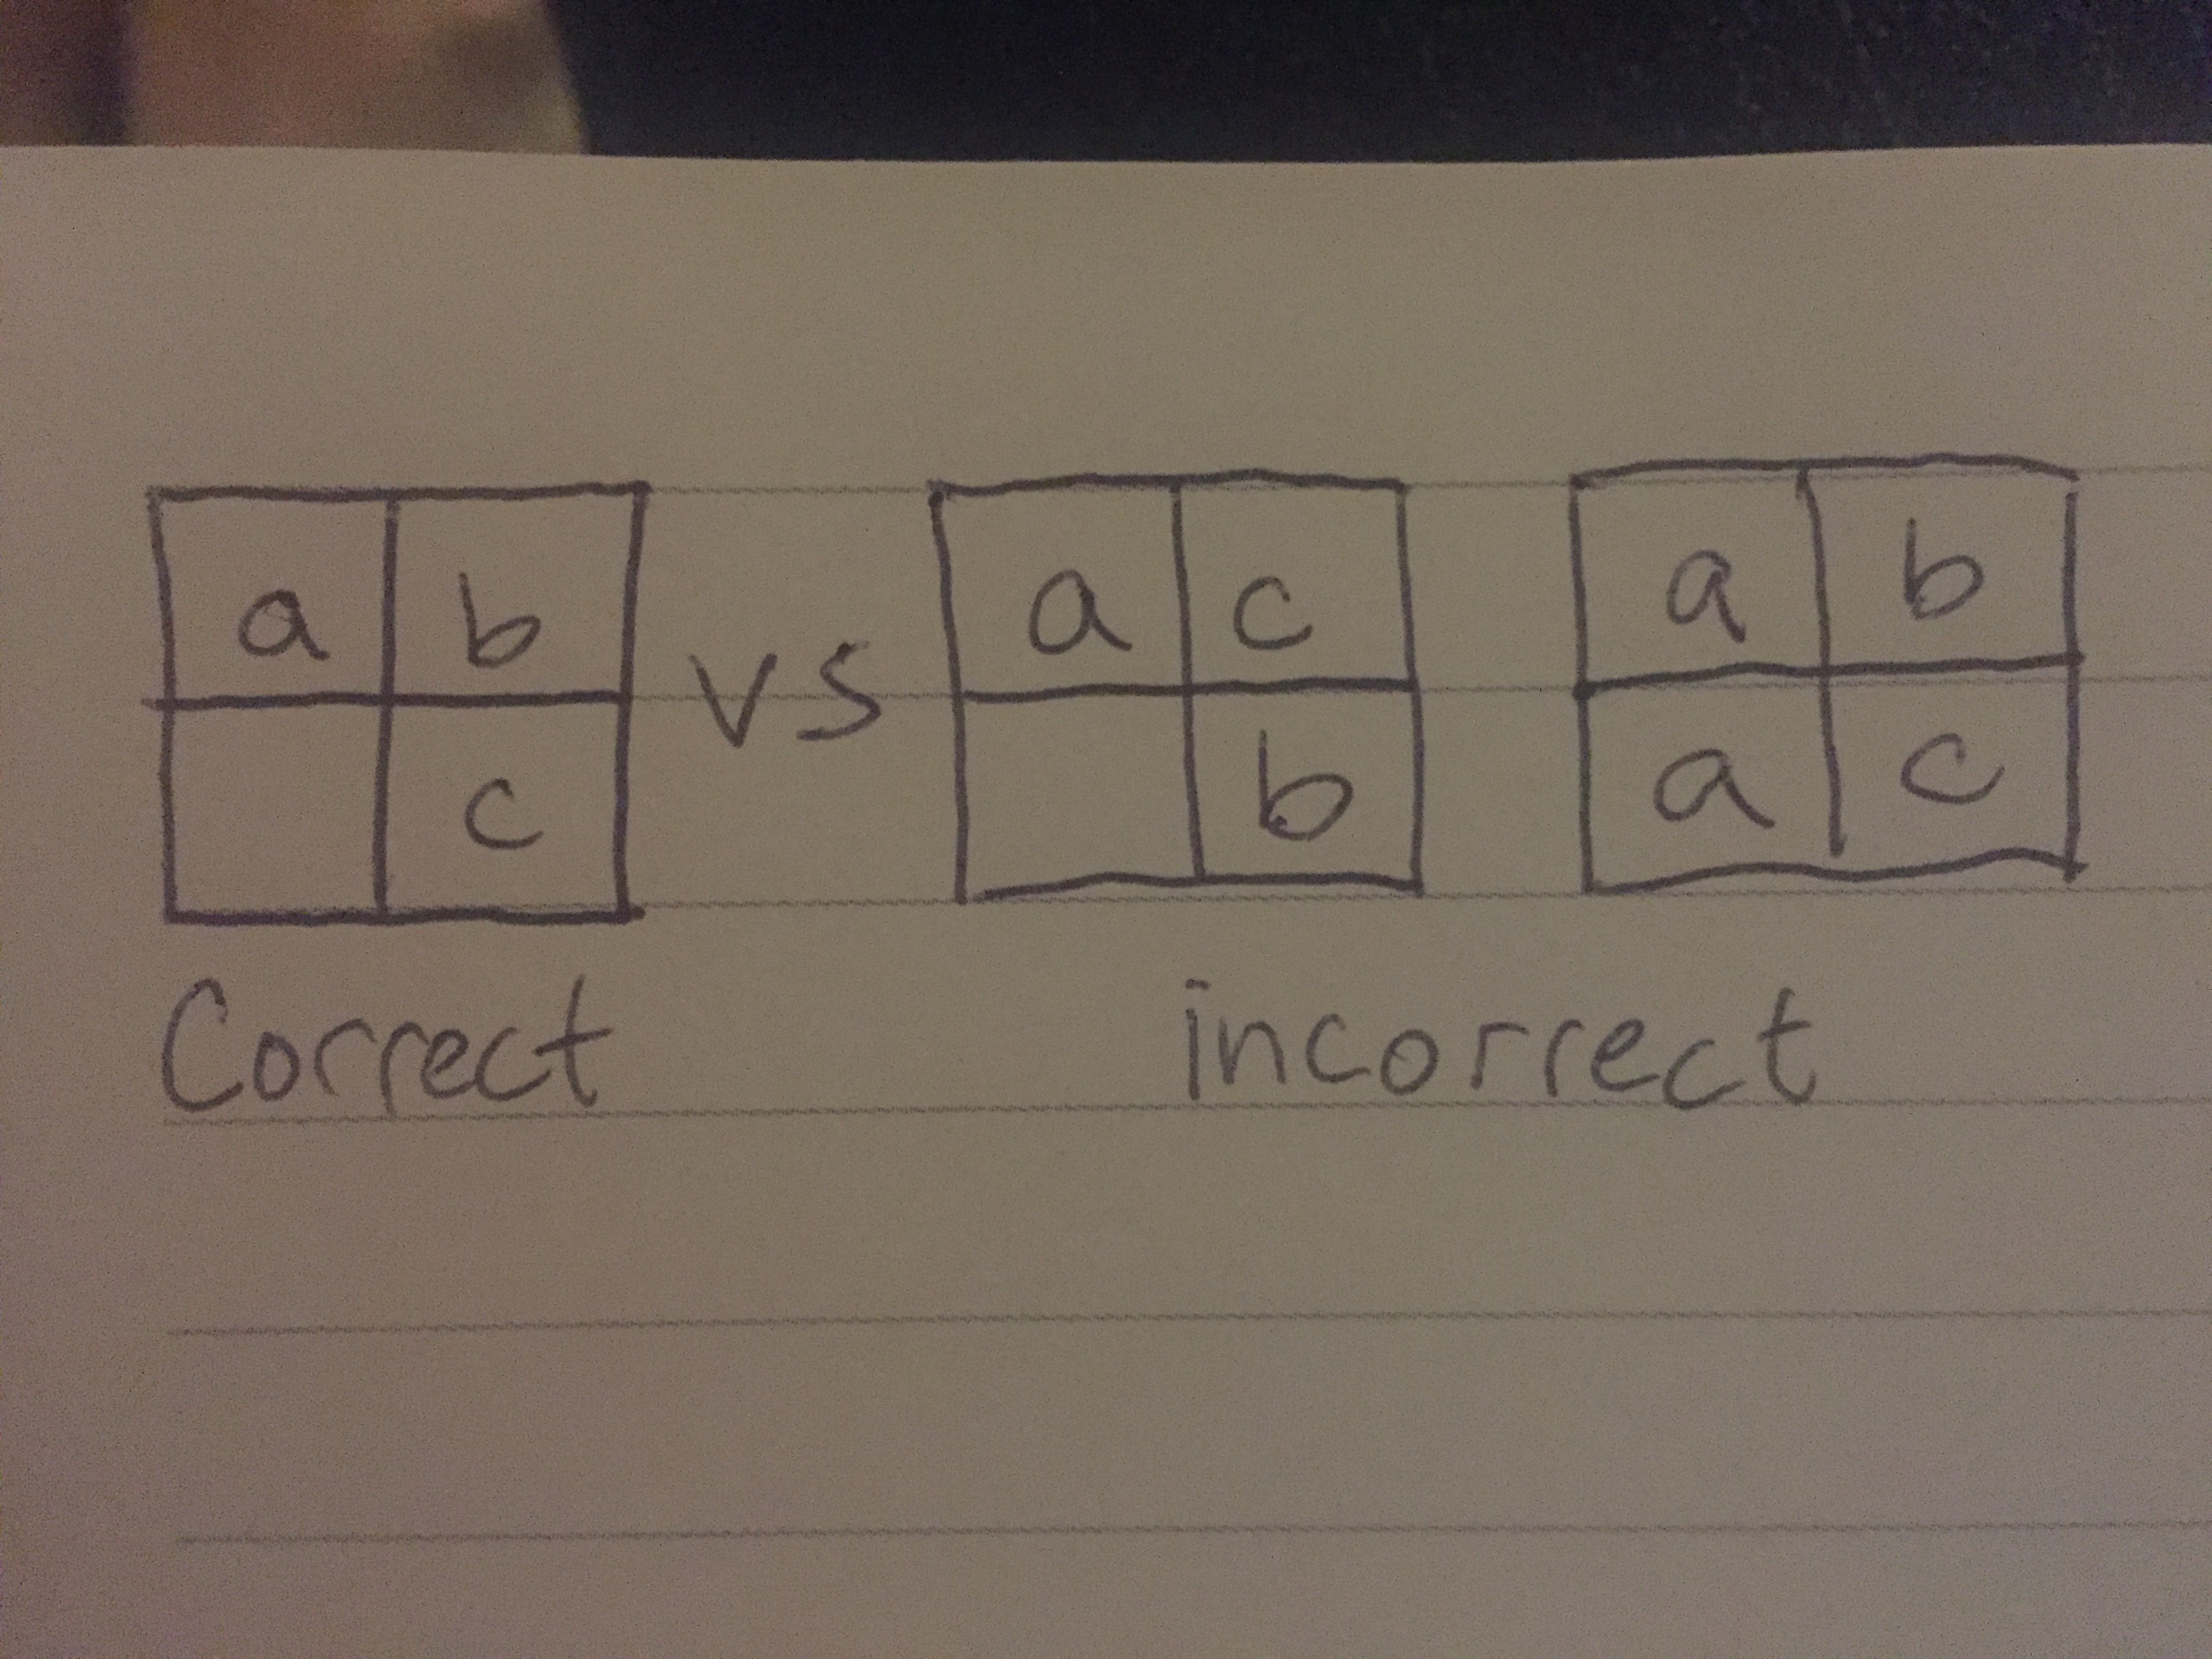 a b vs a c a b
c b a c
Correct incorrect